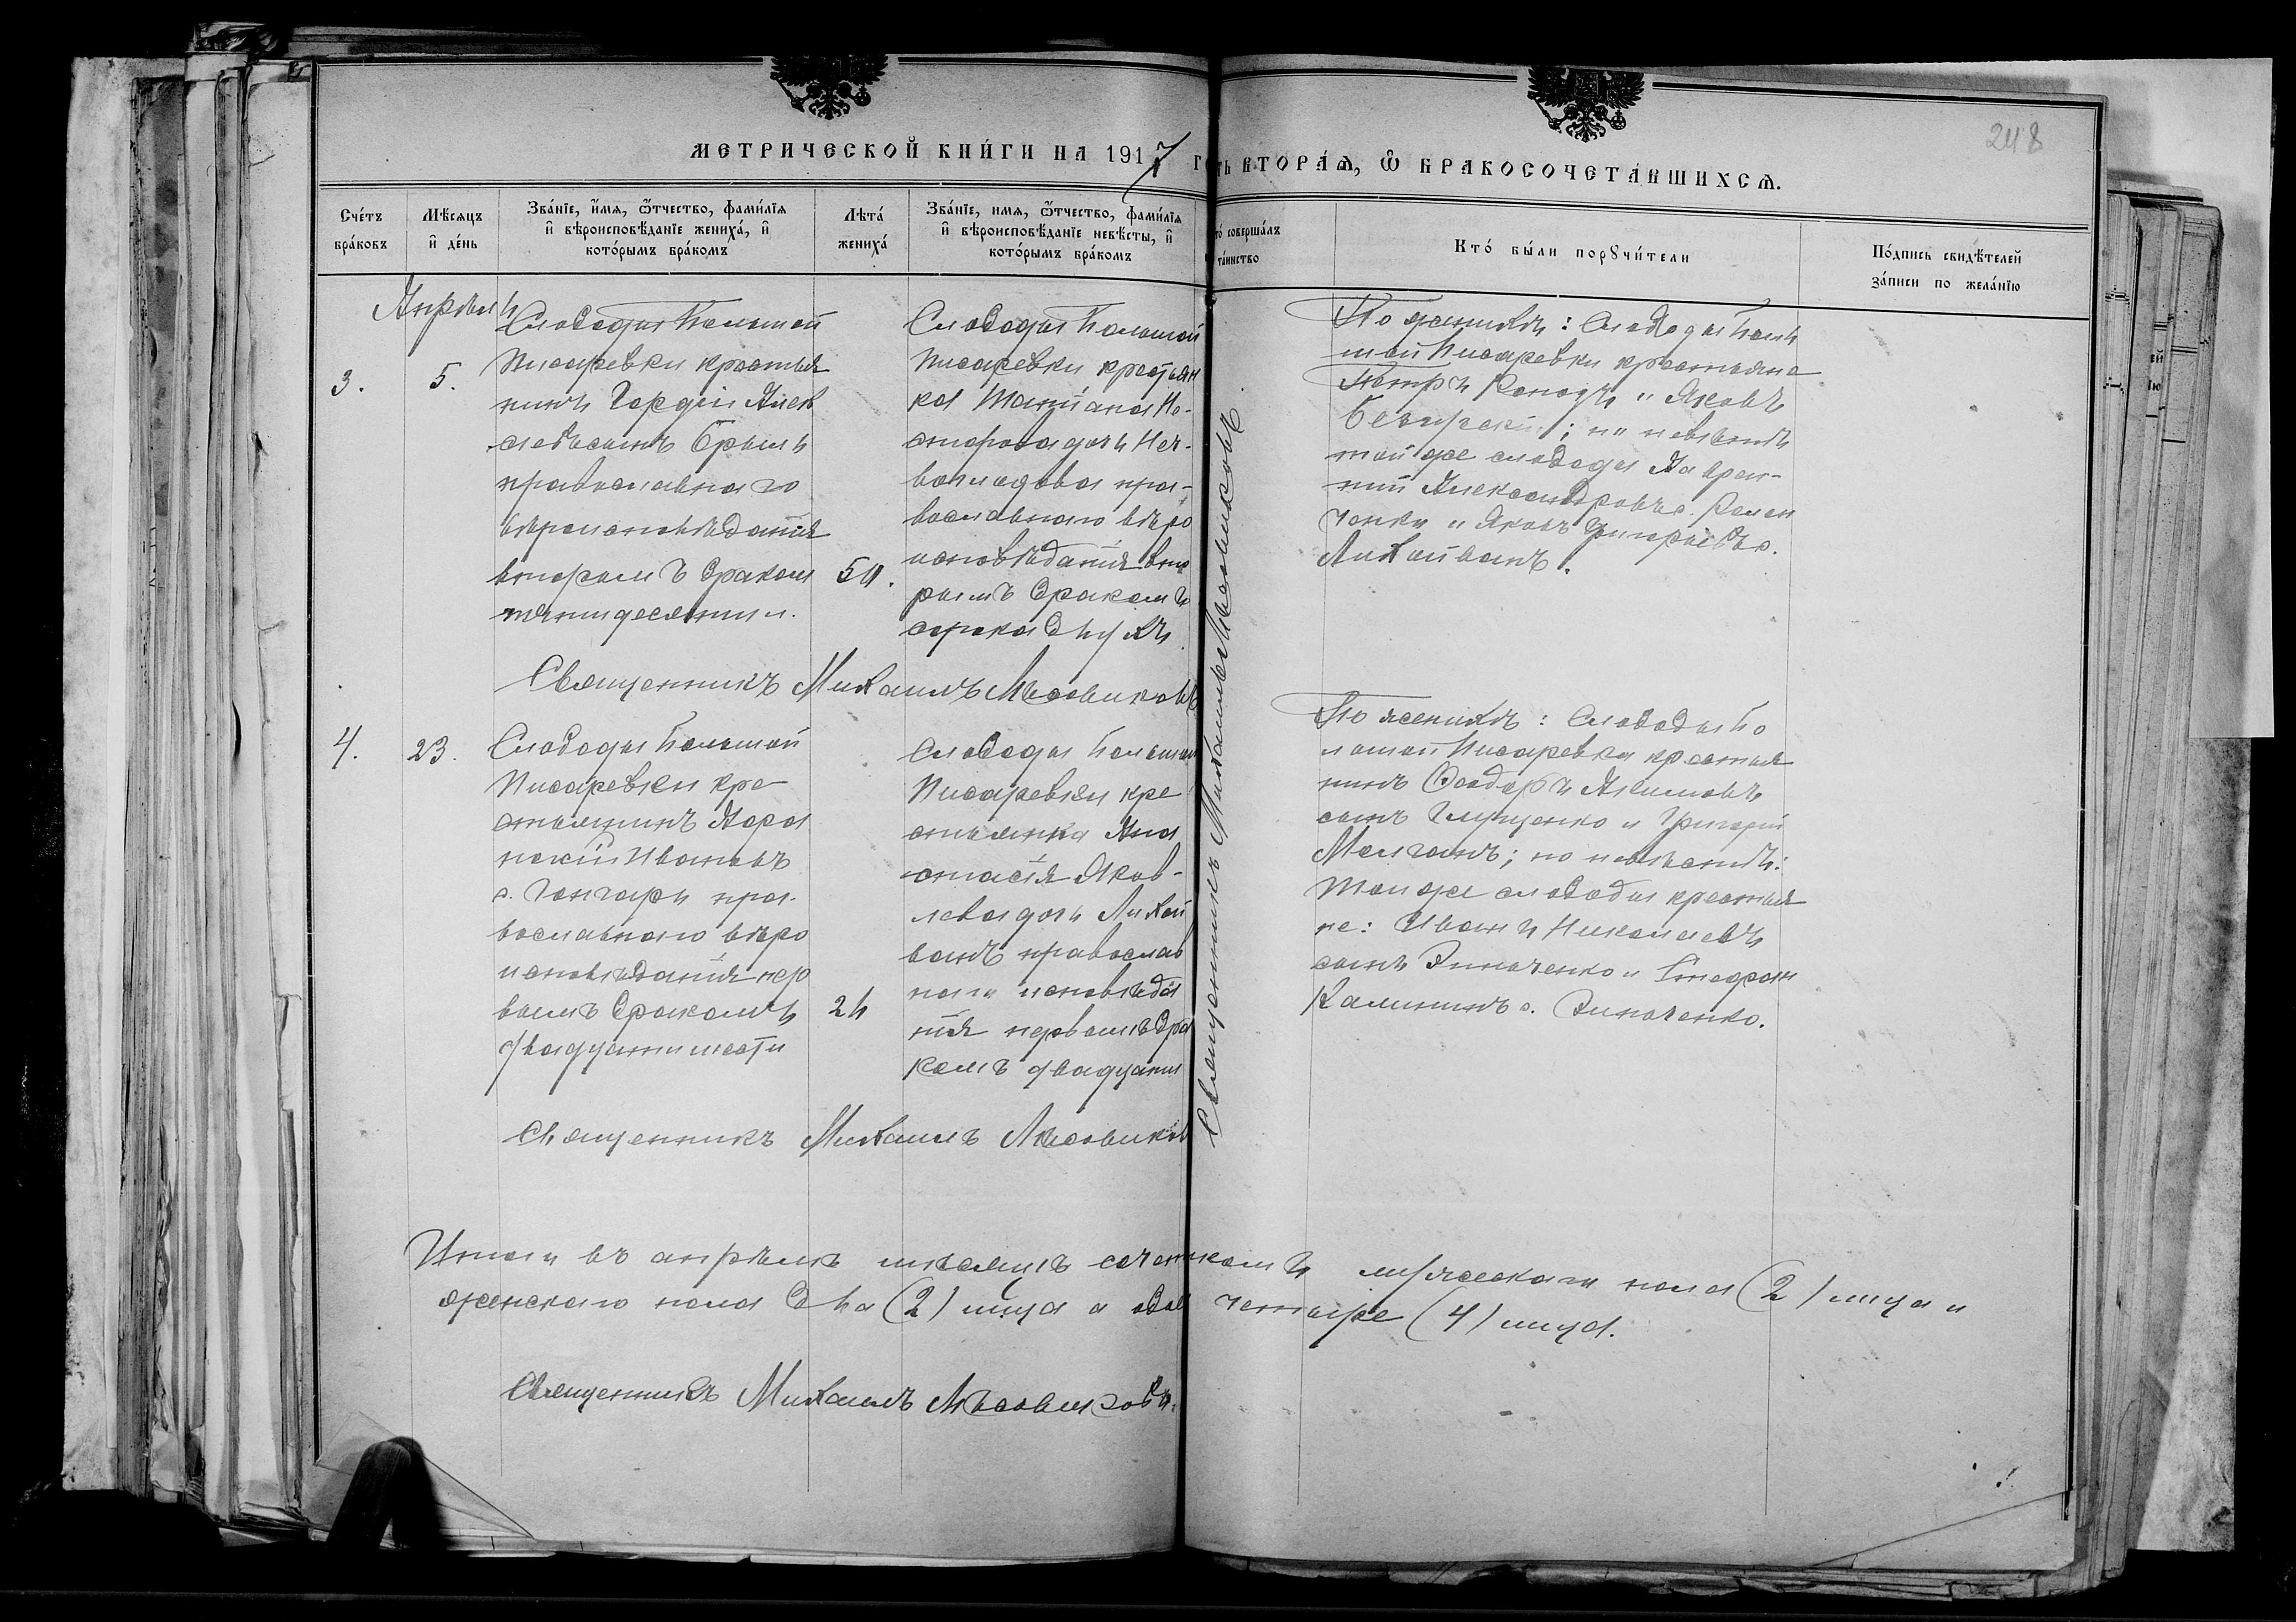 248
МЕТРИЧЕСКОЙ КНИ́ГИ НА 1917 ВТОРА́Ѧ, Ѡ҆ БРАКОСОЧЕТА́ВШИХСѦ.
Сче́тъ бра́ковъ
Мѣ́сяцъ и҆ де́нь
Зва́нїе, и҆́мѧ, ѻ҆́тчество, фами́лїѧ и҆ вѣроисповѣ́данїе жениха́, и҆ кото́рымъ бра́комъ
Лѣта́ жениха́
Зва́нїе, имѧ, ѻ҆́тчество, фами́лїѧ и҆ вѣроисповѣ́данїе невѣ́сты, и҆ кото́рымъ бра́комъ
соверша́лъ та́инство
Кто́ бы́ли порꙋчи́тели
По́дпись свидѣ́телей за́писи по жела́нїю
Апрѣль
3.
5.
Слободы Большой
Писаревки крестья
нинъ Гордѣй Алек
сѣевъ сынъ Брыль
православнаго
вѣроисповѣданія
вторымъ бракомъ
пятидесяти л.
50.
Слободы Большой
Писаревки крестьян
ка Татіана Не-
сторова дочь Неч-
володова пра-
вославнаго вѣро
исповѣданія вто
рымъ бракомъ
сорока двухъ
По женихѣ: Слободы Боль
шой Писаревки крестьяне
Петръ и Яковъ
; по невѣстѣ
той же слободы Лаврен-
тій Александровъ с.
и Яковъ Григорьевъ с.
Лихойванъ.
Священникъ Михаилъ Лѣсовиковъ
4.
23.
Слободы Большой
Писаревки кре
стьянинъ Аѳана
сій Ивановъ
с. Гончаръ пра-
вославнаго вѣро
исповѣданія пер
вымъ бракомъ
двадцати шести
26
Слободы Большой
Писаревки кре
стьянка Ана
стасія Яков-
лева дочь Лихой
ванъ православ
наго исповѣда
нія первымъ бра
комъ двадцати
Священникъ Михаилъ Лѣсовиковъ
По женихѣ: Слободы Бо
льшой Писаревки крестья
нинъ Ѳеодоръ Акимовъ
сынъ Глущенко и Григорій
Молчанъ; по невѣстѣ:
Той же слободы крестья
не: Иванъ Николаевъ
сынъ Зинченко и Стефанъ
Калининъ с. Зинченко.
Священникъ Михаилъ Лѣсовиковъ
Итого въ апрѣлѣ мѣсяцѣ мужескаго пола (2) лица и
женскаго пола два (2) лица а обоего четыре (4) лица.
Священникъ Михаилъ Лѣсовиковъ.